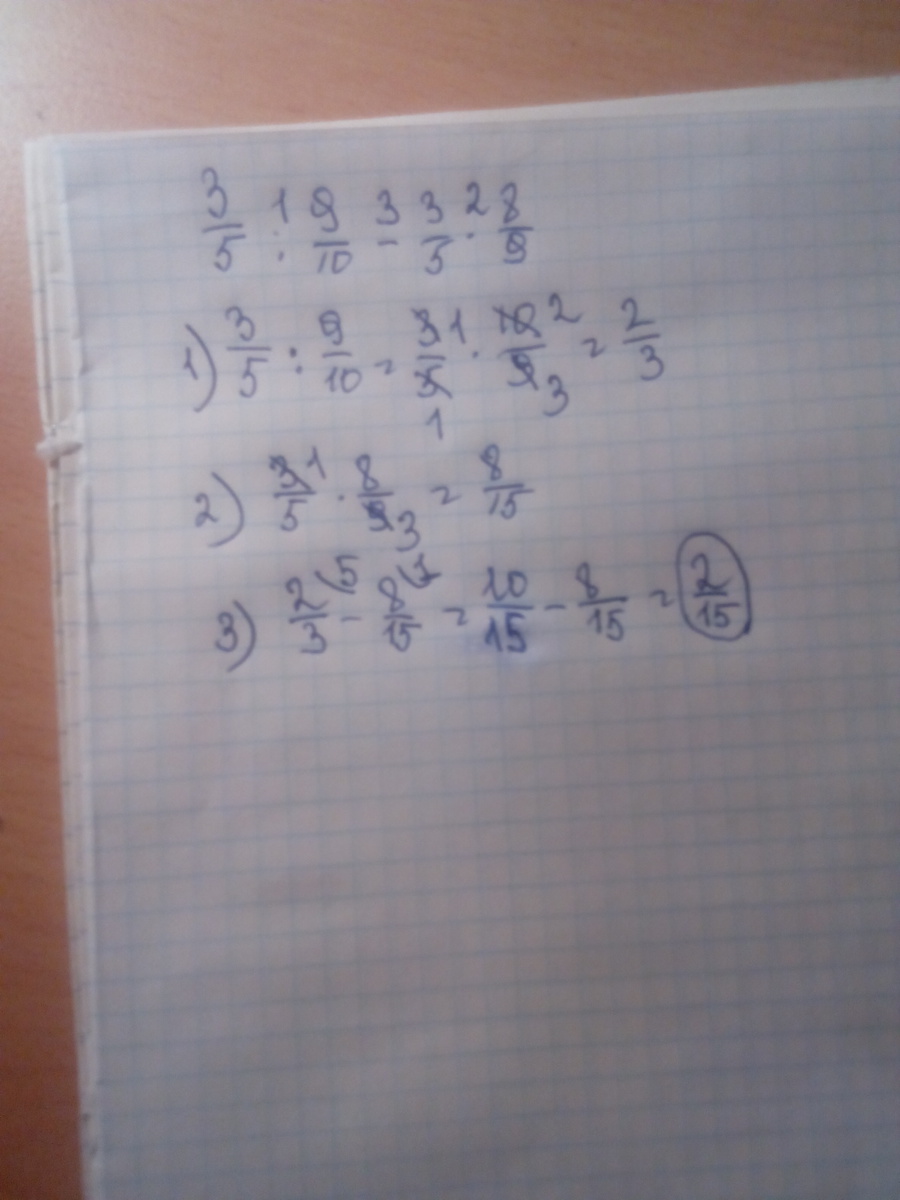 3/5 :¹ 9/10 -³ 3/5 ·² 8/9
1) 3/5 : 9/10 = 3̸ 1/5̸ 1 · 1̸0̸ 2/9̸ 3 = 2/3
2) 3̸ 1/5 · 8/9̸ 3 = 8/15
3) 2/3 (5 - 8/15 (1 = 10/15 - 8/15 = 2/15